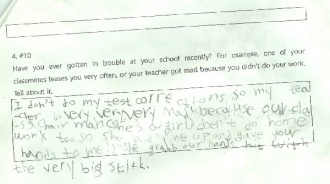 4, #10
Have you ever gotten in trouble at your school recently? For example, one of your
classmates teases you very often, or your teacher got mad because you didn't do your work.
Tell about it.
I don't do my test corre ctions so my tea
cher is very very very mad because our cla
ss chair man comes a girl don't do home
work too so she me up and gave your
hands to me!! she grabb our hands but with
the very big stick.